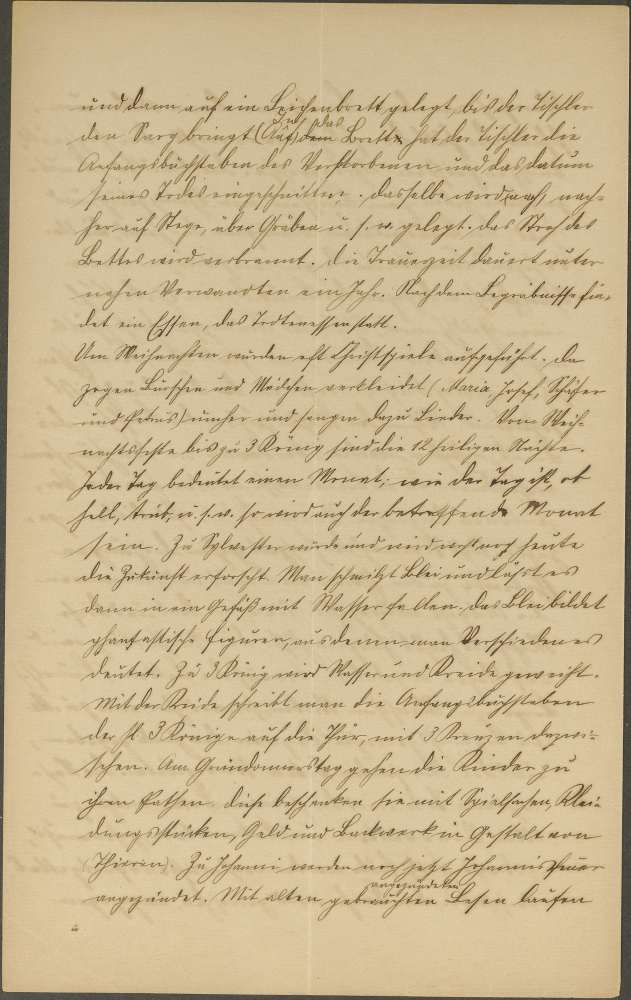 und dann auf ein Leichenbrett gelegt, bis der Tischler
den Sarg bringt (Auf) dem Brette hat der Tischler die
In das
Anfangsbuchstaben des Verstorbenen und das Datum
seines Todes eingeschnitten. Dasselbe wird nach, nach-
her auf Stege, über Gräben u. s. w. gelegt. Das Stroh des
Bettes wird verbrannt. Die Trauerzeit dauert unter
nahen Verwandten ein Jahr. Nach dem Begräbnisse fin-
det ein Essen, das Trotenessen statt.
Um Weihnachten wurden oft Christspiele aufgeführt. Da
zogen Burschen und Mädchen verkleidet (Maria, Josef, Schäfer
und Petrus) umher und sangen dazu Lieder. Vom Weih-
nachtsfeste bis zu 3 König sind die 12 heiligen Nächte.
Jeder Tag bedeutet einen Monat; wie der Tag ist, ob
hell, trüb, u. s. w. so wird auch der betreffende Monat
sein. Zu Sylvester wurde und wird wohl noch heute
die Zukunft erforscht. Man schmilzt Blei und läßt es
dann in ein Gefäß mit Wasser fallen. Das Blei bildet
phantastische Figuren, aus denen man Verschiedenes
deutet. Zu 3 König wird Wasser und Kreide geweiht.
Mit der Kreide schreibt man die Anfangsbuchstaben
der hl 3 Könige auf die Thür, mit 3 Kreuzen dazwi-
schen. Am Gründonnerstag gehen die Kinder zu
ihren Pathen. Diese beschenken sie mit Spielsachen, Klei-
dungsstücken, Geld und Backwerk in Gestalt von
(Thieren). Zu Johanni werden noch jetzt Johannisfeuer
angezündet. Mit alten gebrauchten Besen laufen
angezündeten